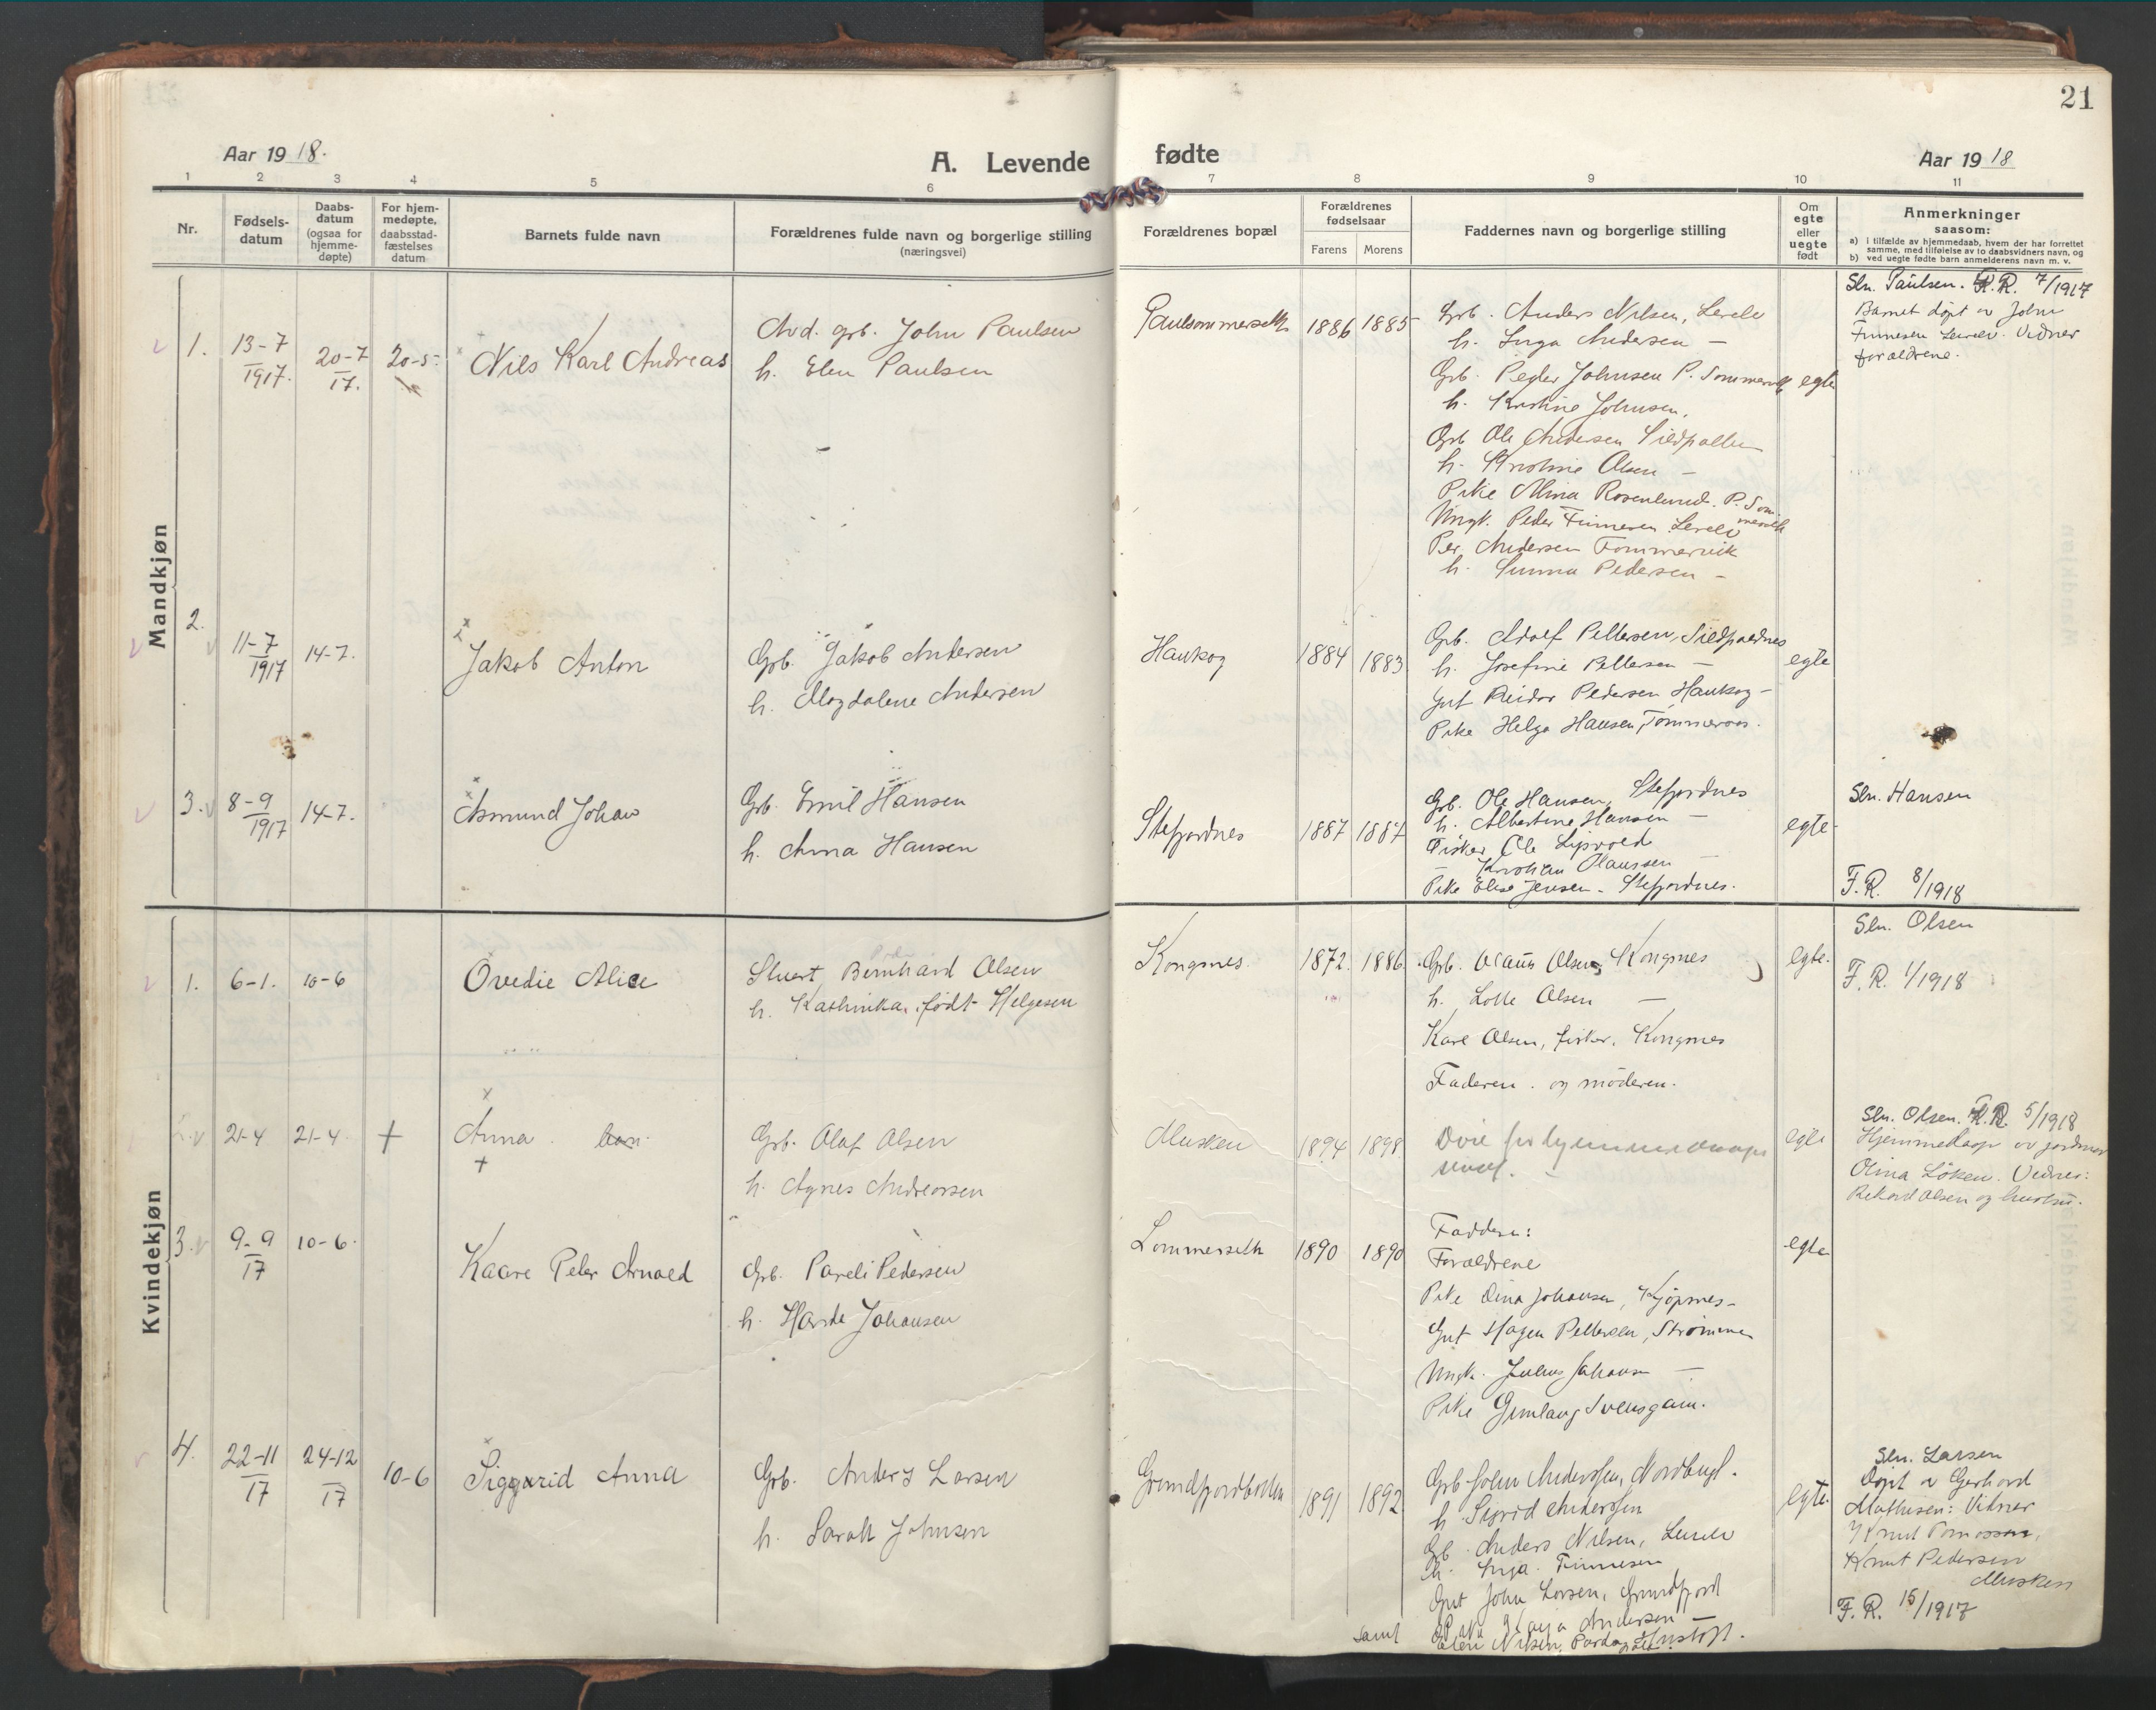 21
Aar 1918.
A. Levende fødte
Aar 1918
1 2 3 4 5 6 7 8 9 10 11
Nr.
Fødsels-
datum
Daabs-
datum
(ogsaa for
hjemme-
døpte)
For hjem-
medøpte,
daabsstad-
fæstelses
datum
Barnets fulde navn
Forældrenes fulde navn og borgerlige stilling
(næringsvei)
Forældrenes bopæl
Forældrenes
fødselsaar
Farens Morens
Faddernes navn og borgerlige stilling
Om
egte
eller
uegte
født
Anmerkninger
saasom:
a) i tilfælde av hjemmedaab, hvem der har forrettet
samme, med tilføielse av to daabsvidners navn, og
b) ved uegte fødte barn anmelderens navn m. v.
Mandkjøn
1.
13-7
1917.
20-7
17.
20-5.
Nils Karl Andreas
grb. John Paulsen
h. Elen Paulsen
1886 1885
Grb. Anders Nilsen,
h. Inga Andersen —
Grb. Peder Johnsen P. Sommerseth
h. Kristine Johnsen.
Grb Ole Andersen
h. Olsen —
Pike Alma Rosenlund. P. Som
merseth
Ungk. Peder Finnesen
Per Andersen Tømmervik
h. Pedersen —
egte
Sln. Paulsen. F.R. 7/1917
Barnet døpt av John
Finnesen Vidner
forældrene.
2.
11-7
1917
14-7.
Jakob Anton
Grb. Jakob Andersen
h. Magdalene Andersen
Haukøy
1884 1883
Grb. Adolf Pettersen,
h. Josefine Pettersen —
Gut Reidar Pedersen Haukøy —
Pike Helga Hansen, Tømmeraas.
egte
3.
8-9
1917
14-7.
Asmund Johan
Grb. Emil Hansen
h. Anna Hansen
Stefjordnes
1887 1887
Grb. Ole Hansen, Stefjordnes
h. Albertine Hansen —
Fisker Ole
Olaussen —
Pike Elise Jensen — Stefjordnes.
egte
Sln. Hansen
F.R. 8/1918
Kvindekjøn
1.
6-1.
10-6
Ovedie Alice
Bernhard Olsen
h. Kathinka, født Helgesen
Kongsnes.
1872. 1886.
Grb. Olaus Olsen, Kongsnes
h. Lotte Olsen —
Kare Olsen, fisker, Kongsnes
Faderen og moderen.
egte.
Sln. Olsen
F.R. 1/1918
21-4
21-4
+
Anna
+
Grb. Olaf Olsen
h. Agnes Andreassen
Musken
1894 1898
egte
Sln. Olsen. F.R. 5/1918
Hjemmedøpt av jordmor
Olina Løken. Vidner:
Rikard Olsen og hustru.
3.
9-9
17
10-6.
Kaare Peter Arnold
Grb. Pareli Pedersen
h. Johansen
1890 1890
Faddere:
Forældrene
Pike Dina Johansen, Kjøpsnes —
Gut Hagen Pettersen, Strømmen
Ungk. Julius Johansen —
Pike
egte
4.
22-11
17
24-12
17
10-6
Siggurid Anna
Grb. Anders Larsen
h. Sarah Johnsen
Grundfjordbotten
1891 1892
Grb John Anderssen,
h. Sigrid Anderssen
Grb. Anders Nilsen,
h. Inga Finnesen
Gut John Larsen, Grundfjord
Pike Andersen —
samt Elen Nilsen,
egte.
Sln. Larsen
Døpt av Gerhard
Mathisen: Vidner
Knut
Knut Pedersen
Musken
F.R. 15/1917